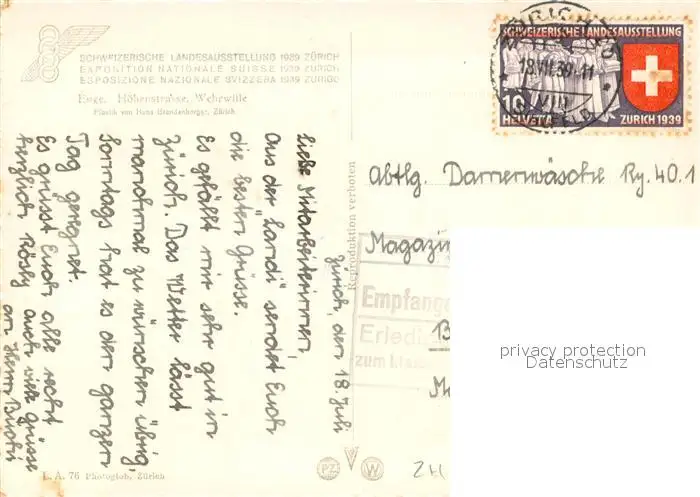 SCHWEIZERISCHE LANDESAUSSTELLUNG 1939 ZÜRICH
EXPOSITION NATIONALE SUISSE 1939 ZURICH
ESPOSIZIONE NAZIONALE SVIZZERA 1939 ZURIGO
Enge. Höhenstrasse. Wehrwille
Plastik von Hans Brandenberger, Zürich
Zürich, den 18. Juli
Liebe Mitarbeiterinnen,
Aus der "Landi" sendet Euch
die besten Grüsse.
Es gefällt mir sehr gut in
Zürich. Das Wetter lässt
manchmal zu wünschen übrig,
Sonntags hat es den ganzen
Tag geregnet.
Es grüsst Euch alle recht
herzlich Rösly auch viele Grüsse
an Herrn
L. A. 76 Photoglob, Zürich
Reproduktion verboten
PZ
W
SCHWEIZERISCHE LANDESAUSSTELLUNG
10
HELVETIA
ZÜRICH 1939
18.VII.39-11
VIII
Abtlg. Damenwäsche Ry. 40.1
Magazin
Empfange
Erledi
zum
B
M
privacy protection
Datenschutz